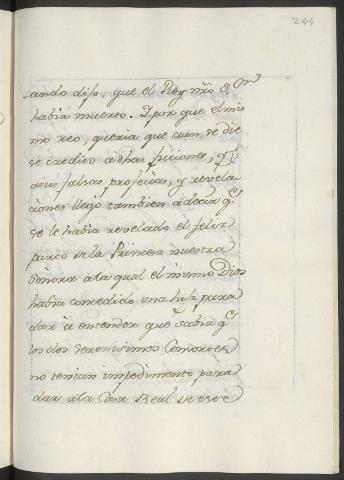 244
ando dijo, que el Rey nrõ S.ᵒʳ
habia muerto. Y por que el mis
mo reo, queria que aun se die
se credito a dhas ficciones, y
a sus falsas profecias, y revela
ciones llegó tambien a decir q.ᵉ
se le habia revelado el feliz
parto de la Princesa nuestra
Señora a la qual el mismo Dios
habia concedido una hija para
dar à entender que sabia q.ᵉ
los dos serenisimos Consortes
no tenian impedimento para
dar a la Casa Real de este